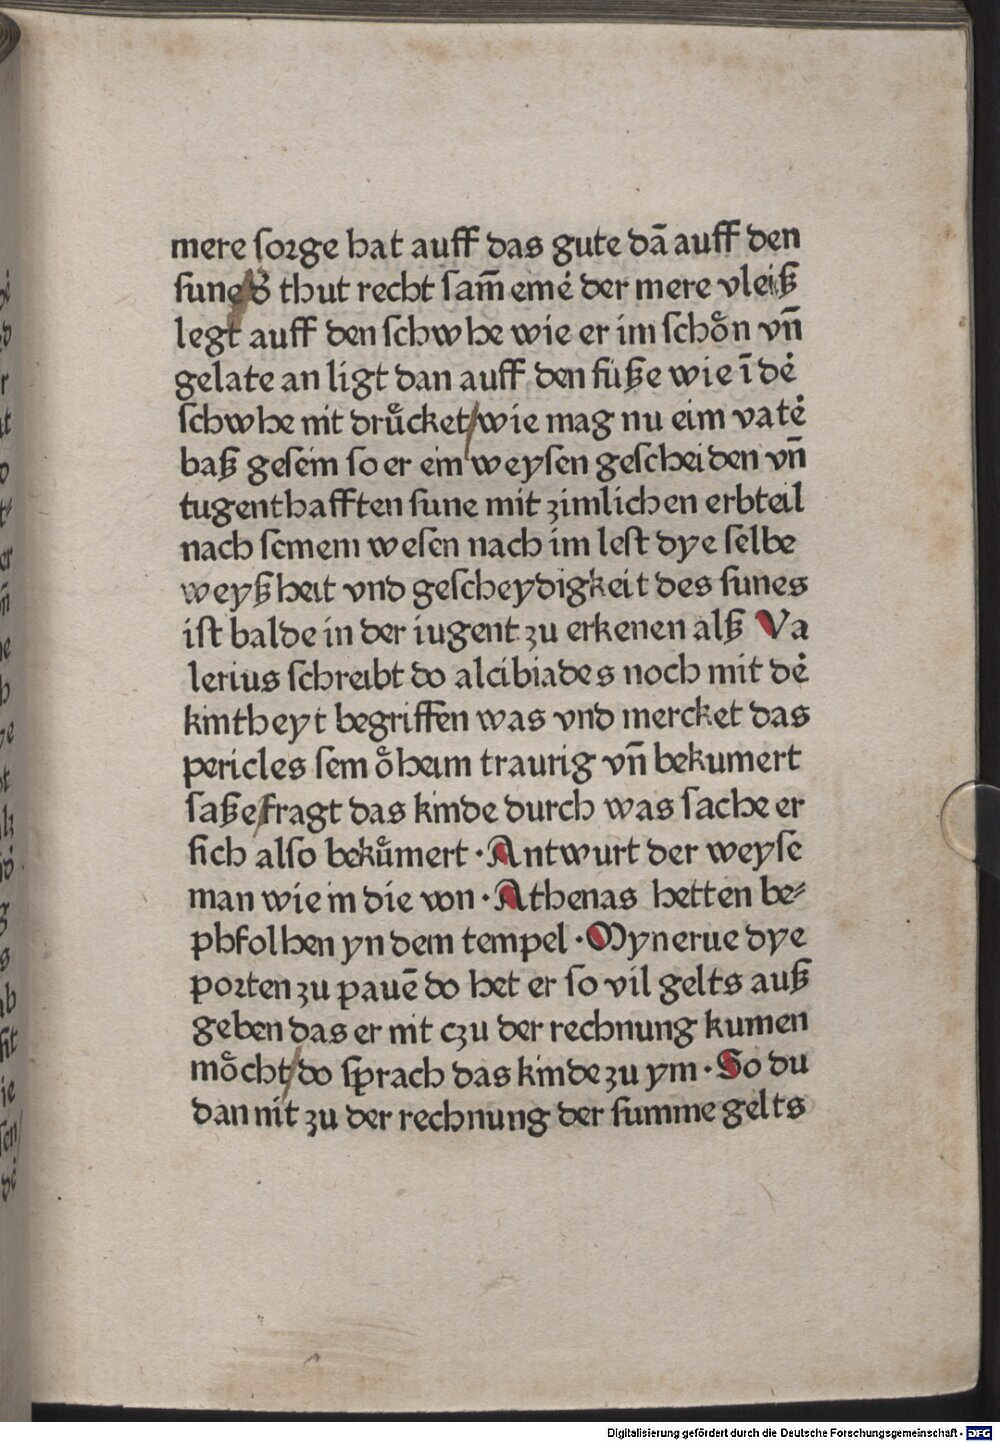 mere sorge hat auff das gute dā auff den
sune / d' thut recht sam̄ eine' der mere vleiß
legt auff den schwhe wie er im schoͤn vn̄
gelate an ligt dan auff den fúße wie ī de'
schwhe nit druͤcket / wie mag nu eim vate'
baß gesein so er ein weysen gescheiden vn̄
tugenthafften sune mit zimlichen erbteil
nach seinem wesen nach im lest dye selbe
weyßheit vnd gescheydigkeit des sunes
ist balde in der iugent zu erkenen alß Va
lerius schreibt do alcibiades noch mit de'
kintheyt begriffen was vnd mercket das
pericles sein oͤheim traurig vn̄ bekumert
saße / fragt das kinde durch was sache er
sich also bekuͤmert · Antwurt der weyse
man wie in die von · Athenas hetten be⸗
phfolhen yn dem tempel · Mynerue dye
porten zu pauē do het er so vil gelts auß
geben das er nit czu der rechnung kumen
moͤcht / do sprach das kinde zu ym · So du
dan nit zu der rechnung der summe gelts
Digitalisierung gefördert durch die Deutsche Forschungsgemeinschaft - DFG